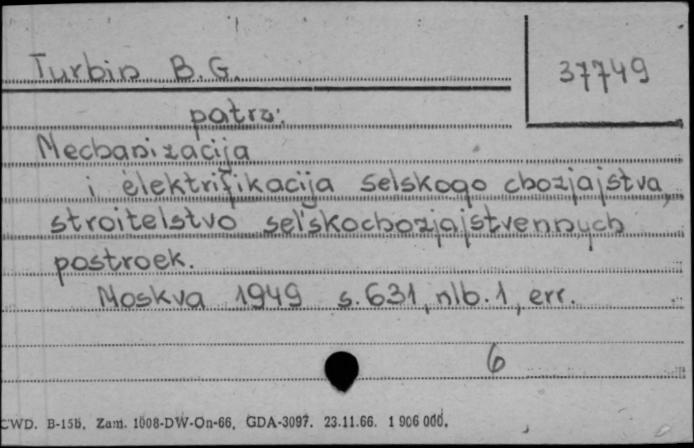 Turbin B.G.
37749
patrz:
Mechanizacija
i èlektrifikacija selskogo chozjajstva,
stroitelstvo sel'skochozjajstvennych
postroek.
Moskva 1949 s. 631, nlb. 1, err.
6
CWD. B-15b. Zam. 1008-DW-On-66. GDA-3097. 23.11.66. 1 906 000.